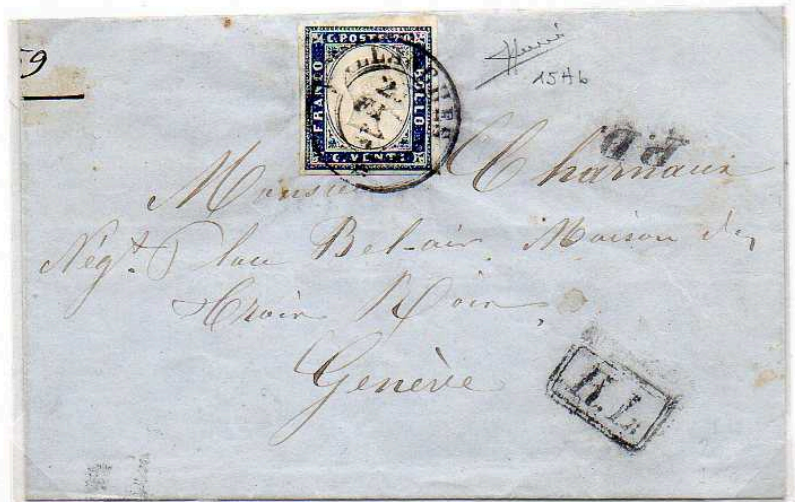 59
C. POSTE 20
FRANCO
BOLLO
C. VENTI
SALLANCHES
15Ab
P.D.
Monsieur Charnaux
Négt. Place Bel-air, Maison des
Trois Rois,
Genève
R.L.